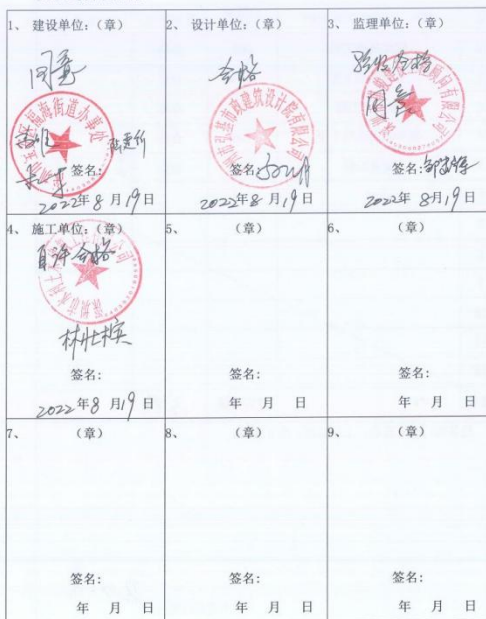 1、 建设单位:(章)
同意
福海街道办事处
签名:
2022年8月19日
2、 设计单位:(章)
合格
市政建筑设计院有限公司
签名:
2022年8月19日
3、 监理单位:(章)
验收合格
同意
顾问有限公司
签名:
2022年8月19日
4、 施工单位:(章)
自评合格
林壮槟
签名:
2022年8月19日
5、 (章)
签名:
年 月 日
6、 (章)
签名:
年 月 日
7、 (章)
签名:
年 月 日
8、 (章)
签名:
年 月 日
9、 (章)
签名:
年 月 日